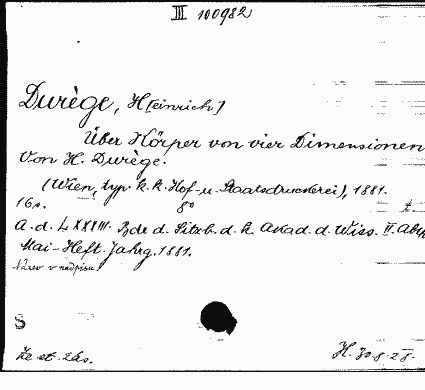 III 100982
Durège, H[einrich]
Über Körper von vier Dimensionen
Von H. Durège.
(Wien, typ. k. k. Hof- u. Staatsdruckerei), 1881.
16 s. 8º
A. d. LXXXIII. Bde d. Sitzb. d. k. Akad. d. Wiss. II. Abth.
Mai-Heft. Jahrg. 1881.
Název v nadpisu.
S
Ze st. 26s.